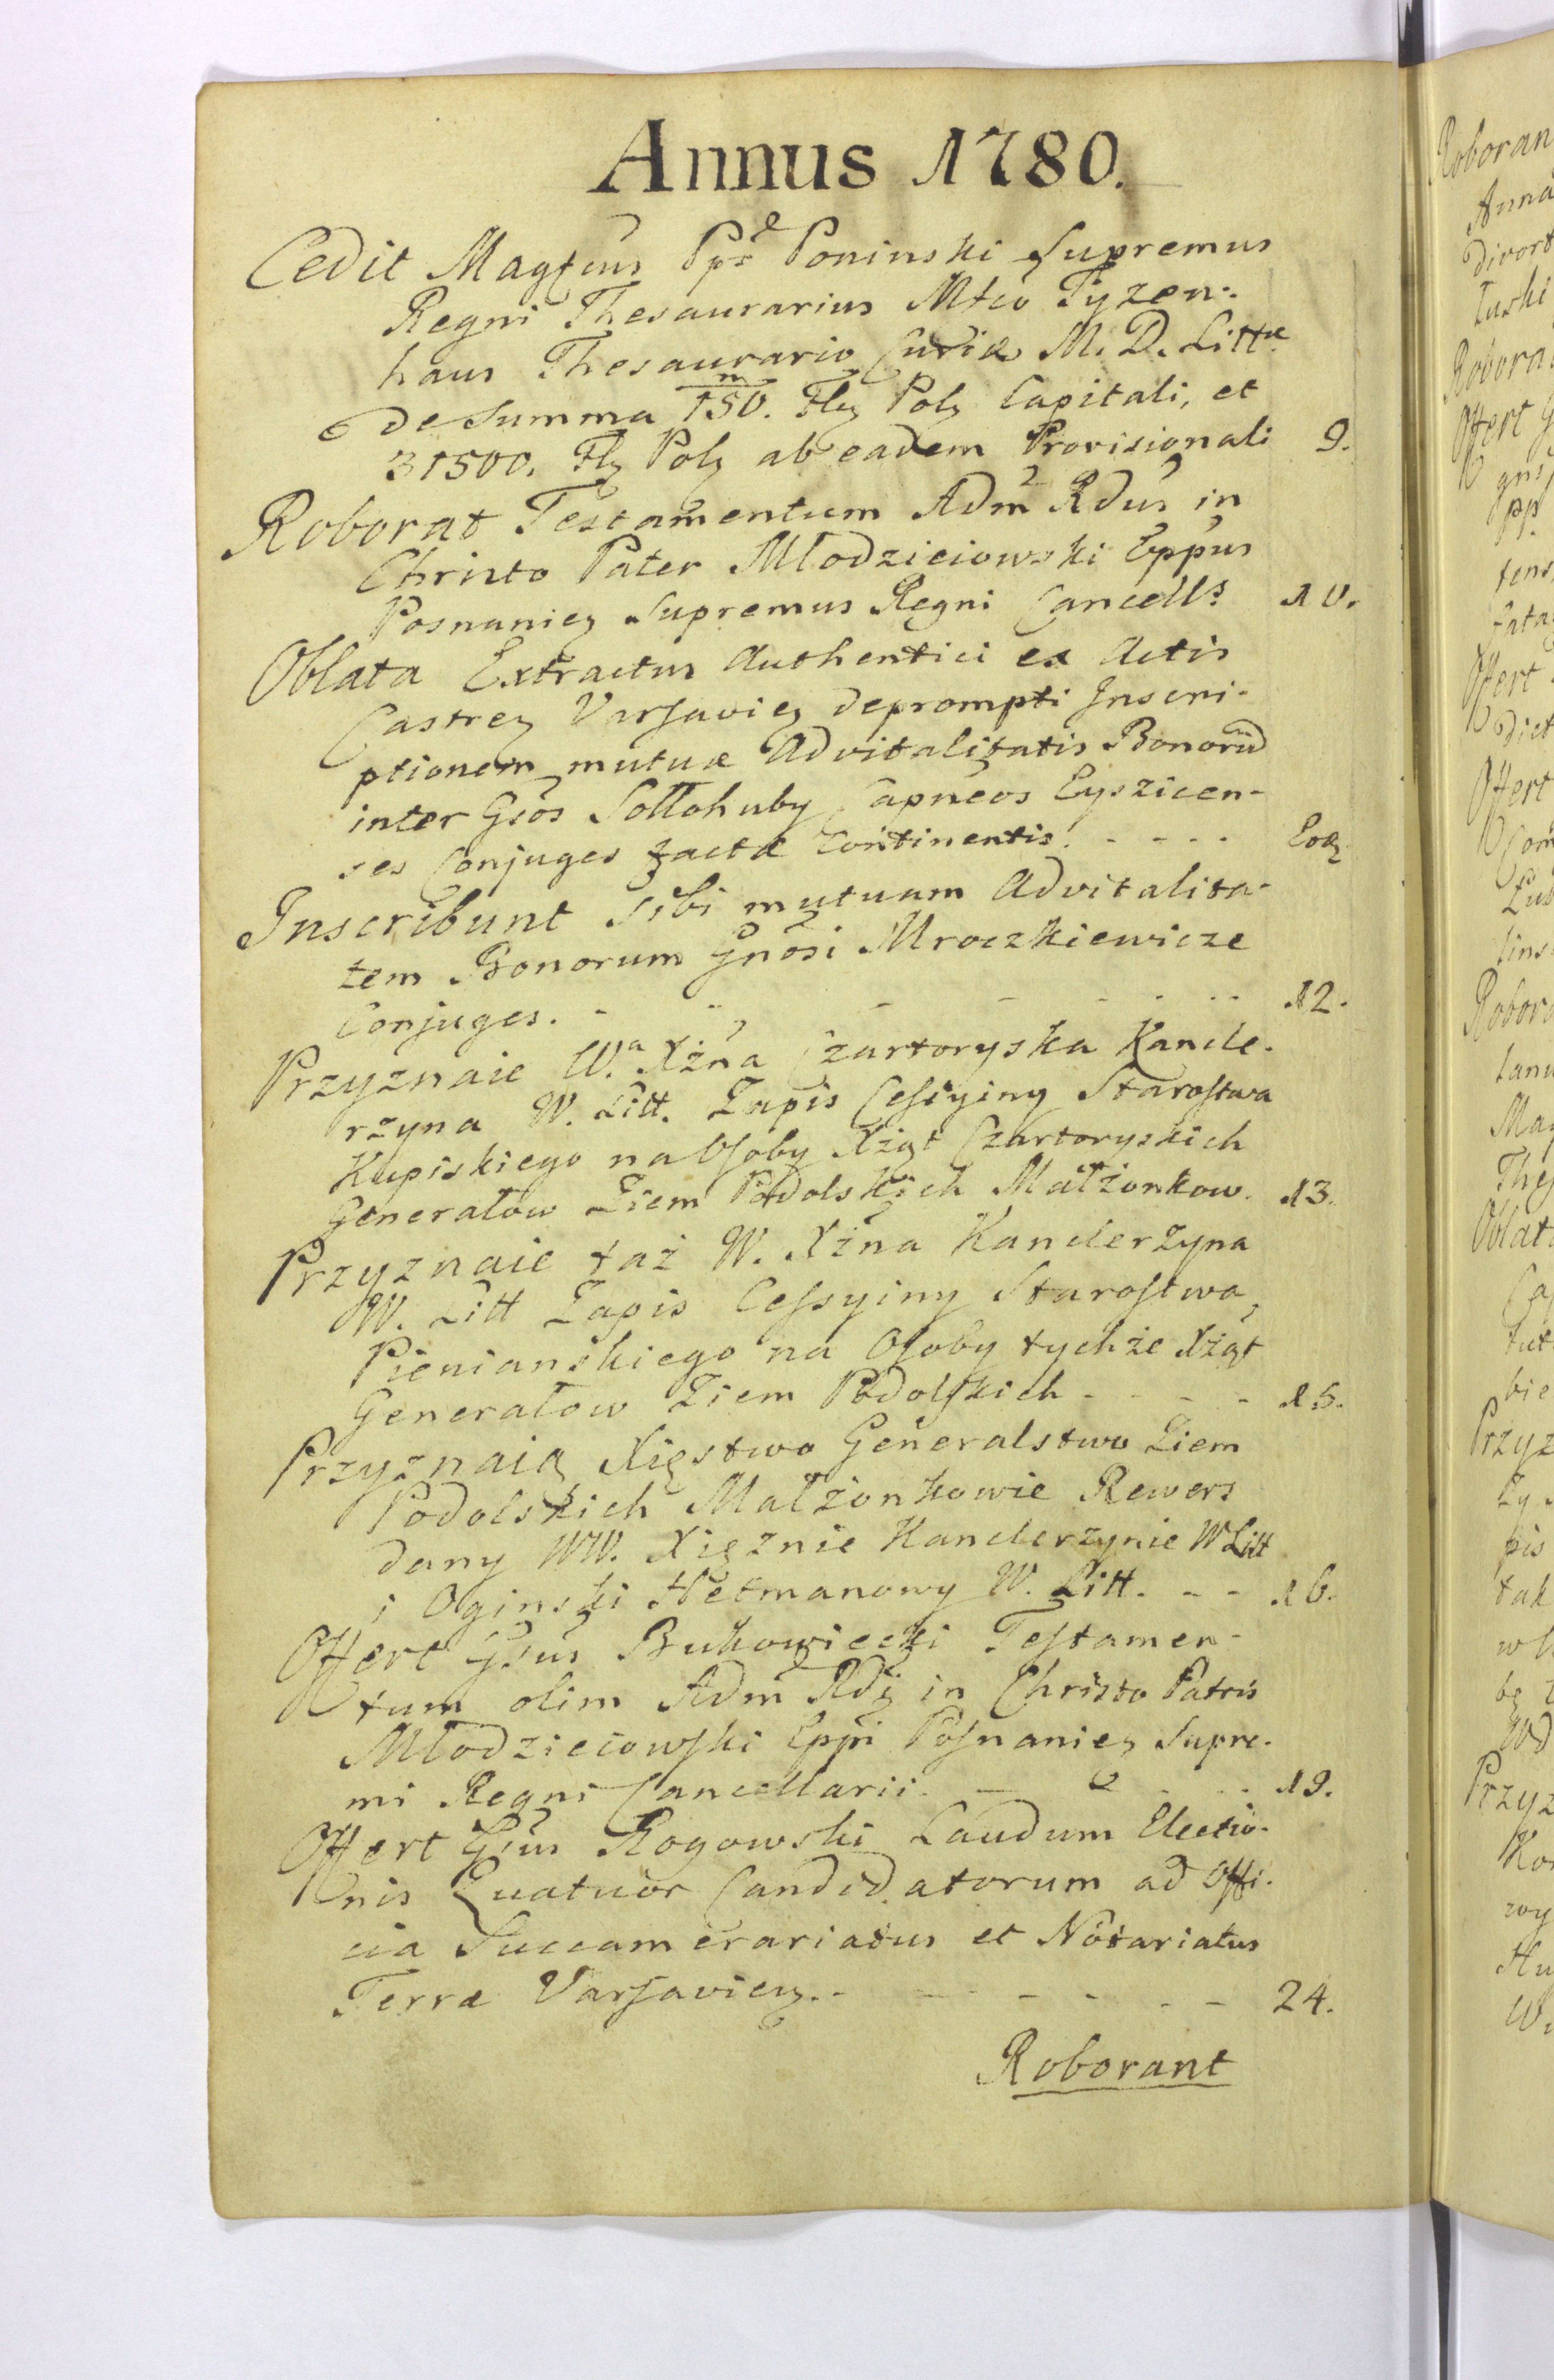 Annus 1780.
Cedit Magfcus Pps Poninski Supremus
Regni Thesaurarius Mfco Tyzen-
haus Thesaurario Curiæ M. D. Littæ
de Summa 150. m Flz Polz Capitali, et
31500. Flz Polz ab eadem Provisionali 9.
Roborat Testamentum Adm Rdus in
Christo Pater Młodzieiowski Eppus
Posnaniez Supremus Regni Cancells 10.
Oblata Extractus Authentici ex Actis
Castrez Varsaviez deprompti Inscri-
ptionem mutuæ Advitalitatis Bonorū
inter Gsos Sołłohuby Capneos Eyszicen-
ses Conjuges factæ Continentis. - - - - Eodz
Inscribunt sibi mutuam Advitalita-
tem Bonorum Gnosi Mroczkiewicze
Conjuges. - - - - - - - 12.
Przyznaie W.a Xżna Czartoryska Kancle-
rzyna W. Litt. Zapis Cessyiny Starostwa
Kupiskiego na Osoby Xżąt Czartoryskich
Generałów Ziem Podolskich Małżonkow. 13.
Przyznaie taż W. Xżna Kanclerzyna
W. Litt Zapis Cessyiny Starostwa
Pienianskiego na Osoby tychże Xżąt
Generałow Ziem Podolskich - - - - 15.
Przyznaią Xięstwo Generalstwo Ziem
Podolskich Małżonkowie Rewers
dany WW. Xiężnie Kanclerzynie W Litt
i Oginski Hetmanowy W. Litt. - - 16.
Offert Gsus Bukowiecki Testamen-
tum olim Adm Rdi in Christo Patris
Młodzieiowski Eppi Posnaniez Supre-
mi Regni Cancellarii. - - - - 19.
Offert Gsus Rogowski Laudum Electio-
nis Quatuor Candidatorum ad Offi-
cia Succamerariatus et Notariatus
Terræ Varsaviez. - - - - - - - 24.
Roborant